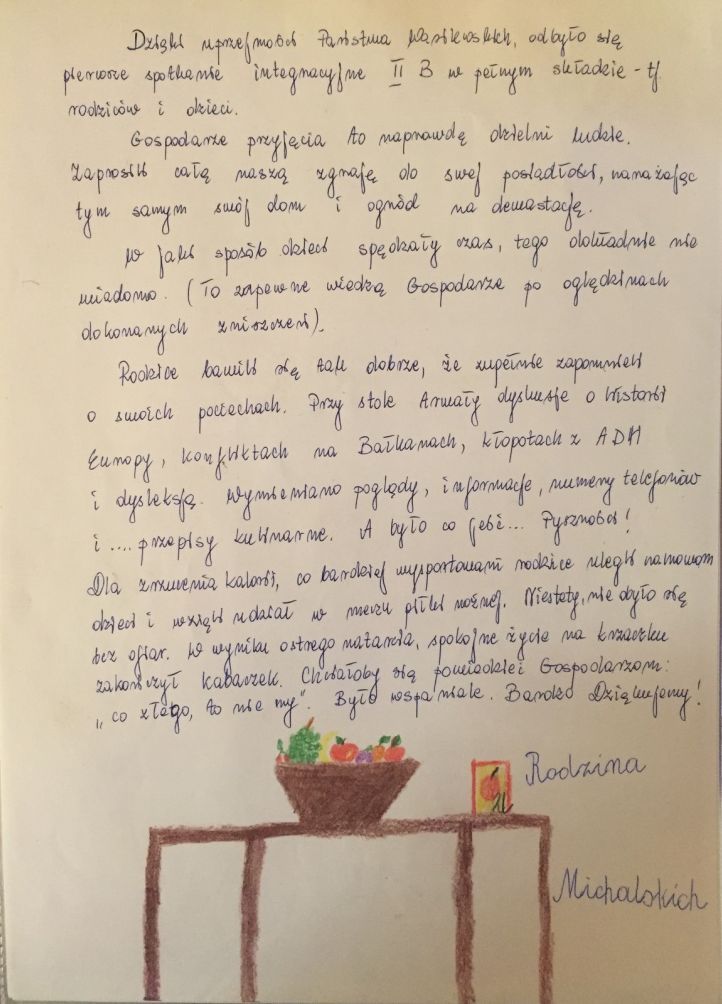 Dzięki uprzejmości Państwa Wasilewskich, odbyło się
pierwsze spotkanie integracyjne II B w pełnym składzie - tj.
rodziców i dzieci.
Gospodarze przyjęcia to naprawdę dzielni ludzie.
Zaprosili całą naszą zgraję do swej posiadłości, narażając
tym samym swój dom i ogród na dewastację.
W jaki sposób dzieci spędzały czas, tego dokładnie nie
wiadomo. (To zapewne wiedzą Gospodarze po oględzinach
dokonanych zniszczeń).
Rodzice bawili się tak dobrze, że zupełnie zapomnieli
o swoich pociechach. Przy stole trwały dyskusje o Historii
Europy, konfliktach na Bałkanach, kłopotach z ADM
i dysleksją. Wymieniano poglądy, informacje, numery telefonów
i .... przepisy kulinarne. A było co jeść... Pyszności!
Dla zrzucenia kalorii, co bardziej wysportowani rodzice ulegli namowom
dzieci i wzięli udział w meczu piłki nożnej. Niestety, nie obyło się
bez ofiar. W wyniku ostrego natarcia, spokojne życie na krzaczku
zakończył kabaczek. Chciałoby się powiedzieć Gospodarzom:
„co złego, to nie my". Było wspaniale. Bardzo Dziękujemy!
Rodzina
Michalskich